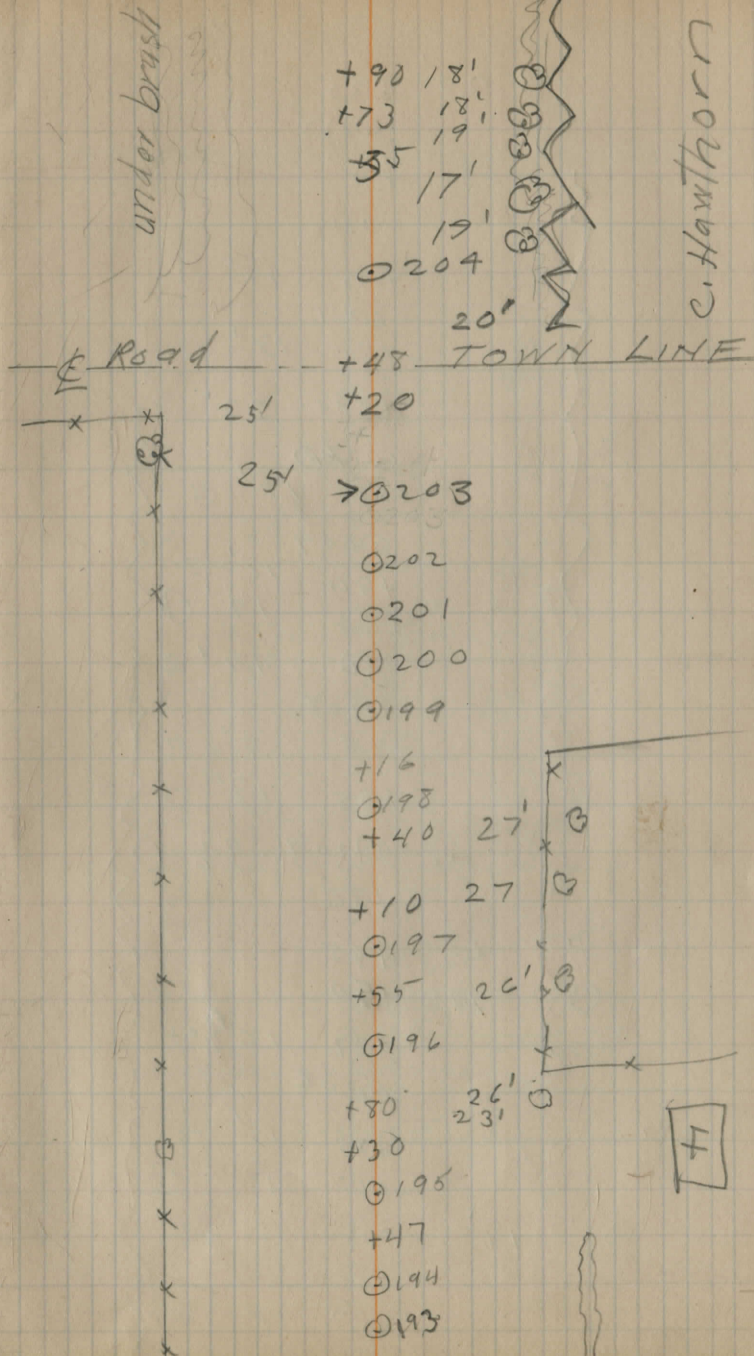 under brush
C. Hawthorn
+90 18'
+73 18'
19'
+35
17'
19'
204
20'
℄ Road +48 TOWN LINE
25' +20
25' 203
202
201
200
199
+16
198
+40 27'
+10 27
197
+55 26'
196
26'
+80 23'
+30
195
+47
194
193
H